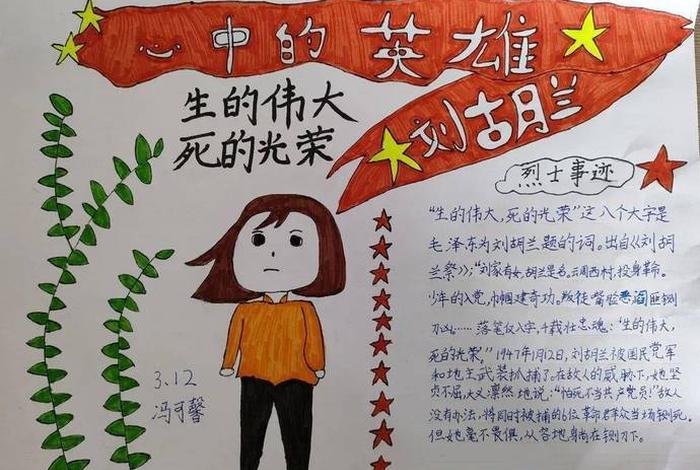 心中的英雄
刘胡兰
生的伟大
死的光荣
烈士事迹
"生的伟大,死的光荣"这八个大字是
毛泽东为刘胡兰题的词。出自《刘胡
兰祭》;"刘家有女,胡兰是名。云周西村,投身革命。
少年的入党,巾帼建奇功。叛徒
落笔仅八字,千载壮忠魂:"生的伟大,
死的光荣,"1947年1月12日,刘胡兰被国民党军
和地主武装抓捕了。在敌人的威胁下,她坚
贞不屈,大义凛然地说:"怕死不当共产党员!"敌人
没有办法,将同时被捕的6位革命群众当场铡死,
但她毫不畏惧,从容地躺在铡刀下。
3.12
冯可馨